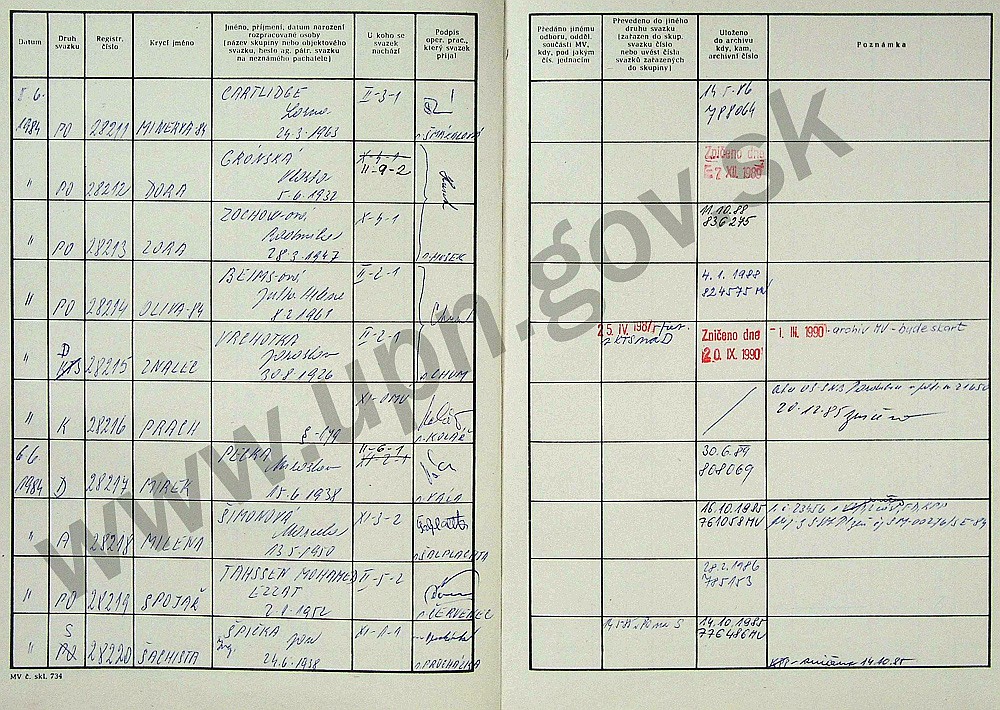 Datum
Druh
svazku
Registr.
číslo
Krycí jméno
Jméno, příjmení, datum narození
rozpracované osoby
(název skupiny nebo objektového
svazku, heslo ag. pátr. svazku
na neznámého pachatele)
U koho se
svazek
nachází
Podpis
oper. prac.,
který svazek
přijal
Předáno jinému
odboru, odděl.
součásti MV,
kdy, pod jakým
čís. jednacím
Převedeno do jiného
druhu svazku
(zařazen do skup.
svazku číslo
nebo uvést čísla
svazků zařazených
do skupiny)
Uloženo
do archivu
kdy, kam,
archivní číslo
Poznámka
8.6.
1984 PO 28211 MINERVA-84
CARTLIDGE
24.3.1963
II-3-1
14.5.86
788064
" PO 28212 DORA
GRÓNSKÁ
Vlasta
5.6.1932
X-4-1
II-9-2
Zničeno dne
7. XII. 1989
" PO 28213 ZORA
28.3.1947
X-4-1
11.10.88
836275
" PO 28214 OLIVA-84
8.2.1961
II-2-1
4.1.1988
824575 MV
" D
KTS 28215 ZNALEC
VRCHOTKA
Jaroslav
30.8.1926
II-2-1
p. CHUM
25. IV. 1987
z KTS na D
Zničeno dne
20. IX. 1990
-1. III. 1990 - archiv MV - bude skart
" K 28216 PRACH
p. KOLÁŘ
20.12.85
6.6.
1984 D 28217 MIREK
PECKA
Miroslav
15.6.1938
II-6-1
XI-2-1
p. VÁLA
30.6.89
808069
" A 28218 MILENA
ŠIMONOVÁ
13.5.1950
XI-3-2
p. ŠALPLACHTA
16.10.1985
761058 MV
" PO 28219 SPOJAŘ
TAHSSEN MOHAMED
EZZAT
2.8.1952
II-5-2
p. ČERVENEC
28.2.1986
785153
" S
PO 28220 ŠACHISTA
ŠPIČKA
Ing.
24.6.1938
XI-1-1
p. PROCHÁZKA
14.10.1985
776486 MV
14.10.85
MV č. skl. 734
www.upn.gov.sk